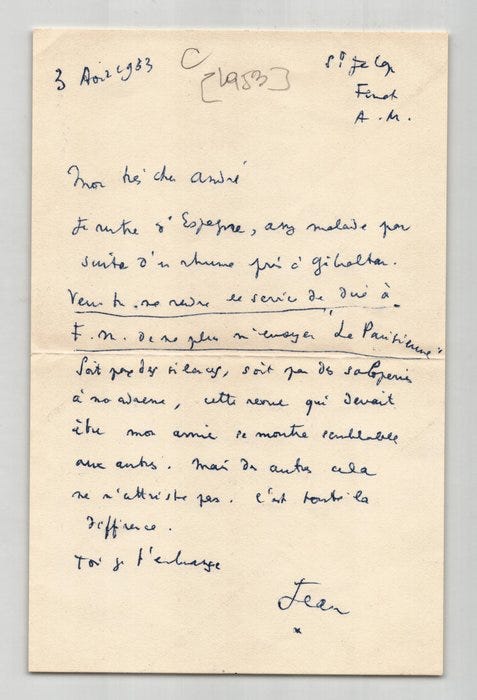 3 Août 1953
C
[1953]
St Jean Cap
Ferrat
A. M.
Mon très cher André
Je rentre d'Espagne, assez malade par
suite d'un rhume pris à Gibraltar.
Veux tu me rendre le service de dire à
F. N. de ne plus m'envoyer "La Parisienne"
Soit par des silences, soit par des saloperies
à mon adresse, cette revue qui devait
être mon amie se montre semblable
aux autres. Mais des autres cela
ne m'attriste pas. C'est toute la
différence.
Toi je t'embrasse
Jean